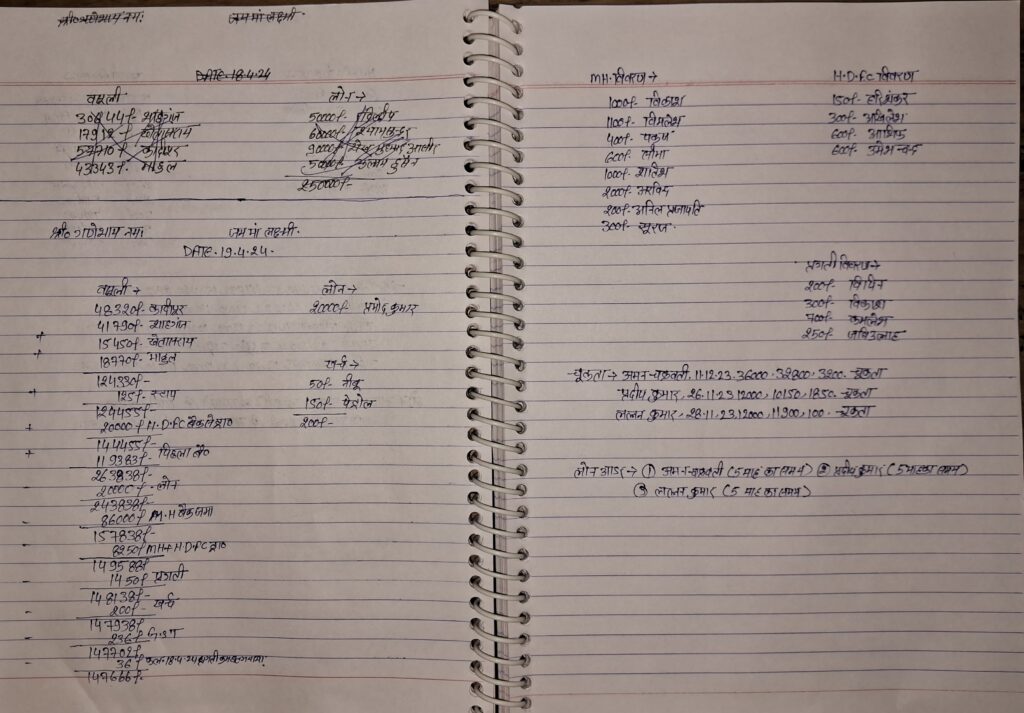 श्री० गणेशाय नमः जय मां लक्ष्मी.
DATE-18.4.24
वसूली
लोन →
30844/- शाहगंज
50000/-
17912/- खेतासराय
60000/-
53710/- कादीपुर
90000/-
43343/- माहुल
50000/-
250000/-
श्री० गणेशाय नमः जय मां लक्ष्मी.
DATE.19.4.24.
वसूली →
लोन →
48320/- कादीपुर
20000/- प्रमोद कुमार
41790/- शाहगंज
+ 15450/- खेतासराय
+ 18770/- माहुल
खर्च →
124330/-
50/- नीबू
+ 125/- स्टाप
150/- पेट्रोल
124455/-
200/-
+ 20000/- H.D.FC बैंक से प्रा०
144455/-
+ 119383/- पिछला बै०
263838/-
- 20000/- लोन
243838/-
- 86000/- M.H बैंक जमा
157838/-
- 8250/- MH+H.D.FC प्रा०
149588/-
- 1450/- प्रगती
148138/-
- 200/- खर्च
147938/-
- 236/- G.ST
147702/-
- 36/-
147666/-
MH.विवरण →
1000/- विकाश
1100/- विमलेश
400/- पंकज
600/- सीमा
1000/- शातिश
2000/- अरविंद
200/- अनिल प्रजापति
300/- सूरज
H.D.FC विवरण
150/- हरिशंकर
300/- अखिलेश
600/- आबिद
600/- उमेश चन्द
प्रगती विवरण →
200/- विपिन
300/- विकाश
700/- कमलेश
250/-
चूकता → अमन चक्रवर्ती, 11.12.23, 36000, 32800, 3200. चूकता
प्रदीप कुमार, 26.11.23, 12000, 10150, 1850. चूकता
ललन कुमार, 28.11.23, 12000, 11900, 100. चूकता
लोन आडर → ① अमन चक्रवर्ती (5 माह का समय) ② प्रदीप कुमार (5 माह का समय)
③ ललन कुमार (5 माह का समय)